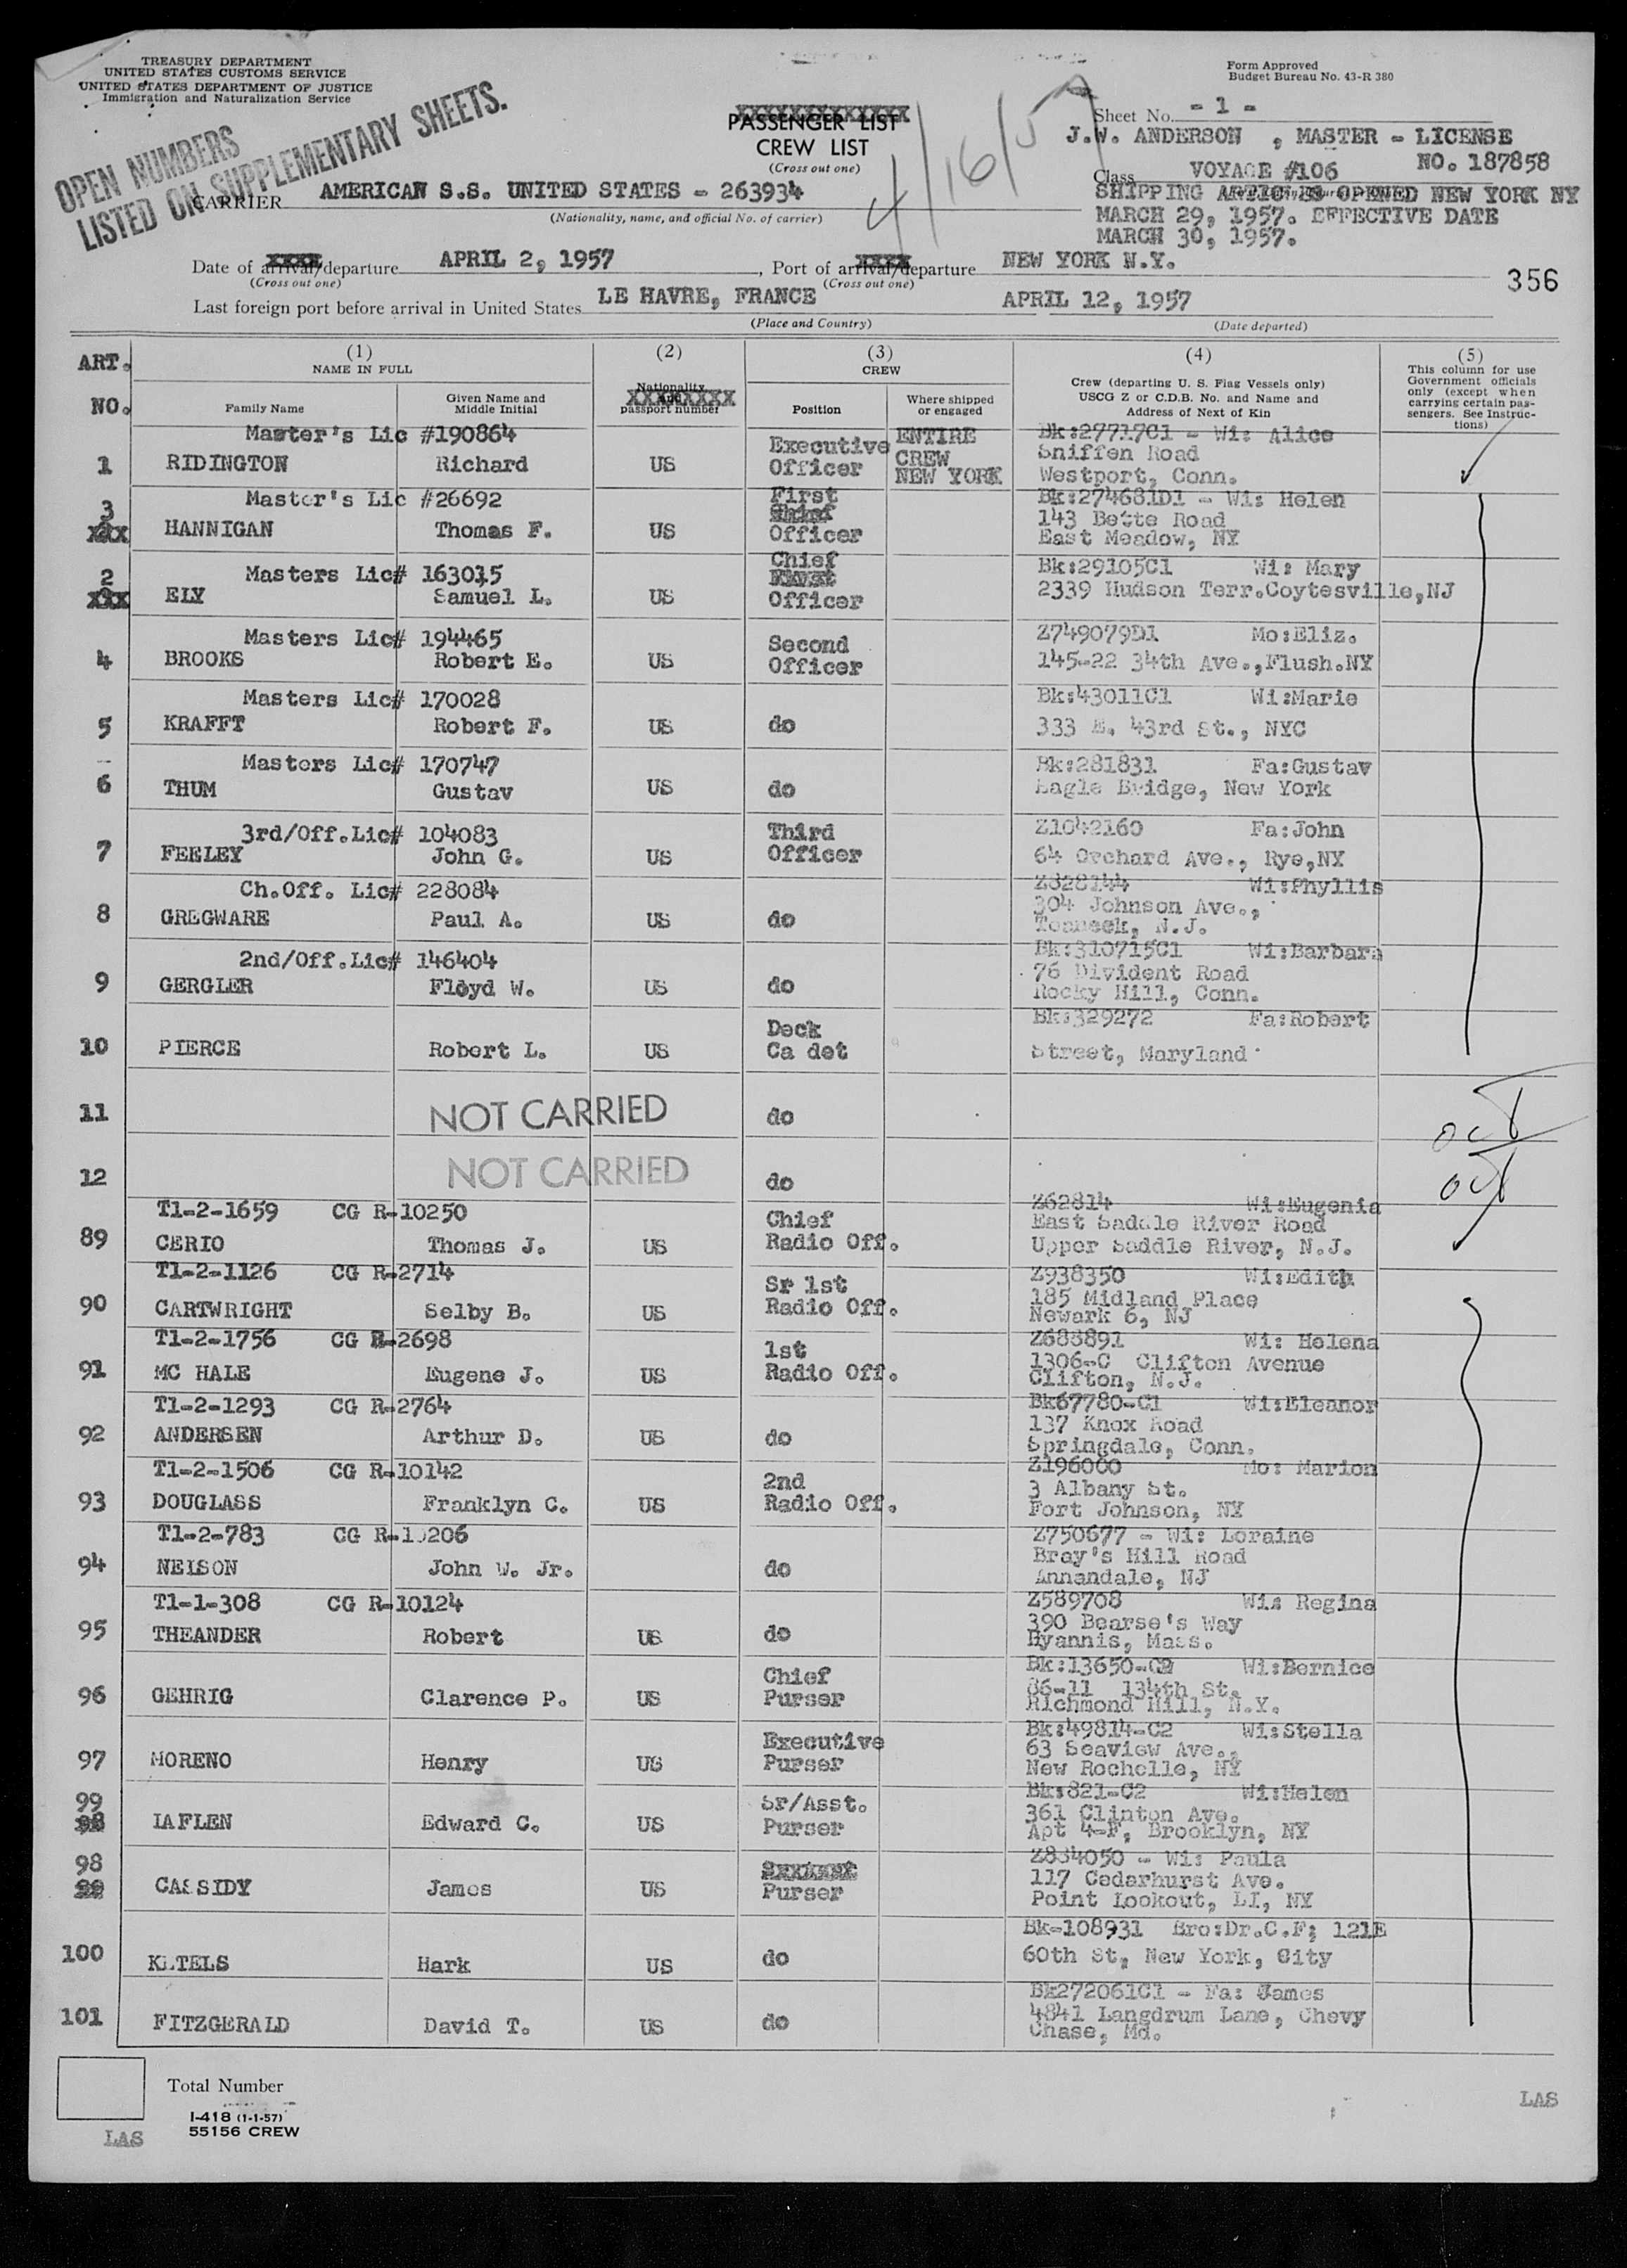 TREASURY DEPARTMENT
UNITED STATES CUSTOMS SERVICE
UNITED STATES DEPARTMENT OF JUSTICE
Immigration and Naturalization Service
OPEN NUMBERS
LISTED ON SUPPLEMENTARY SHEETS.
Form Approved
Budget Bureau No. 43-R 380
PASSENGER LIST
CREW LIST
(Cross out one)
4/16/57
Sheet No. - 1 -
J.W. ANDERSON , MASTER - LICENSE
NO. 187858
Class VOYAGE #106
SHIPPING ARTICLES OPENED NEW YORK NY
MARCH 29, 1957. EFFECTIVE DATE
MARCH 30, 1957.
CARRIER AMERICAN S.S. UNITED STATES - 263934
(Nationality, name, and official No. of carrier)
Date of arrival/departure APRIL 2, 1957, Port of arrival/departure NEW YORK N.Y.
(Cross out one) (Cross out one)
356
Last foreign port before arrival in United States LE HAVRE, FRANCE APRIL 12, 1957
(Place and Country) (Date departed)
ART. NO.
(1) NAME IN FULL
Family Name
Given Name and Middle Initial
(2) Nationality and passport number
(3) CREW
Position
Where shipped or engaged
(4) Crew (departing U. S. Flag Vessels only) USCG Z or C.D.B. No. and Name and Address of Next of Kin
(5) This column for use Government officials only (except when carrying certain passengers. See Instructions)
Master's Lic #190864 Bk:2771701 - Wi: Alice
1 RIDINGTON Richard US Executive Officer ENTIRE CREW NEW YORK Sniffen Road
Westport, Conn.
Master's Lic #26692 Bk:274681D1 - Wi: Helen
3 HANNIGAN Thomas F. US First Officer 143 Bette Road
East Meadow, NY
Masters Lic# 163015 Bk:29105C1 Wi: Mary
2 ELY Samuel L. US Chief Officer 2339 Hudson Terr.Coytesville,NJ
Masters Lic# 194465 Z749079D1 Mo:Eliz.
4 BROOKS Robert E. US Second Officer 145-22 34th Ave.,Flush.NY
Masters Lic# 170028 Bk:43011C1 Wi:Marie
5 KRAFFT Robert F. US do 333 E. 43rd St., NYC
Masters Lic# 170747 Bk:281831 Fa:Gustav
6 THUM Gustav US do Eagle Bridge, New York
3rd/Off.Lic# 104083 Z1042160 Fa:John
7 FEELEY John G. US Third Officer 64 Orchard Ave., Rye,NY
Ch.Off. Lic# 228084 Z328144 Wi:Phyllis
8 GREGWARE Paul A. US do 304 Johnson Ave.,
Teaneck, N.J.
2nd/Off.Lic# 146404 Bk:310715C1 Wi:Barbara
9 GERGLER Floyd W. US do 76 Divident Road
Rocky Hill, Conn.
Bk:329272 Fa:Robert
10 PIERCE Robert L. US Deck Ca det Street, Maryland
11 NOT CARRIED do out
12 NOT CARRIED do out
T1-2-1659 CG R-10250 Z62814 Wi:Eugenia
89 CERIO Thomas J. US Chief Radio Off. East Saddle River Road
Upper Saddle River, N.J.
T1-2-1126 CG R-2714 Z938350 Wi:Edith
90 CARTWRIGHT Selby B. US Sr 1st Radio Off. 185 Midland Place
Newark 6, NJ
T1-2-1756 CG R-2698 Z683891 Wi: Helena
91 MC HALE Eugene J. US 1st Radio Off. 1306-C Clifton Avenue
Clifton, N.J.
T1-2-1293 CG R-2764 Bk67780-C1 Wi:Eleanor
92 ANDERSEN Arthur D. US do 137 Knox Road
Springdale, Conn.
T1-2-1506 CG R-10142 Z196000 Mo: Marion
93 DOUGLASS Franklyn C. US 2nd Radio Off. 3 Albany St.
Fort Johnson, NY
T1-2-783 CG R-10206 Z750677 - Wi: Loraine
94 NELSON John W. Jr. do Bray's Hill Road
Annandale, NJ
T1-1-308 CG R-10124 Z589708 Wi: Regina
95 THEANDER Robert US do 390 Bearse's Way
Hyannis, Mass.
Bk:13650-C2 Wi:Bernice
96 GEHRIG Clarence P. US Chief Purser 86-11 134th St.
Richmond Hill, N.Y.
Bk:49814-C2 Wi:Stella
97 MORENO Henry US Executive Purser 63 Seaview Ave.,
New Rochelle, NY
Bk:821-C2 Wi:Helen
99 LAFLEN Edward C. US Sr/Asst. Purser 361 Clinton Ave.
Apt 4-F, Brooklyn, NY
Z834050 - Wi: Paula
98 CASSIDY James US Purser 117 Cedarhurst Ave.
Point Lookout, LI, NY
Bk-108931 Bro:Dr.C.F; 121E
100 KETELS Hark US do 60th St, New York, City
Bk272061C1 - Fa: James
101 FITZGERALD David T. US do 4841 Langdrum Lane, Chevy
Chase, Md.
Total Number
I-418 (1-1-57)
55156 CREW
LAS
LAS